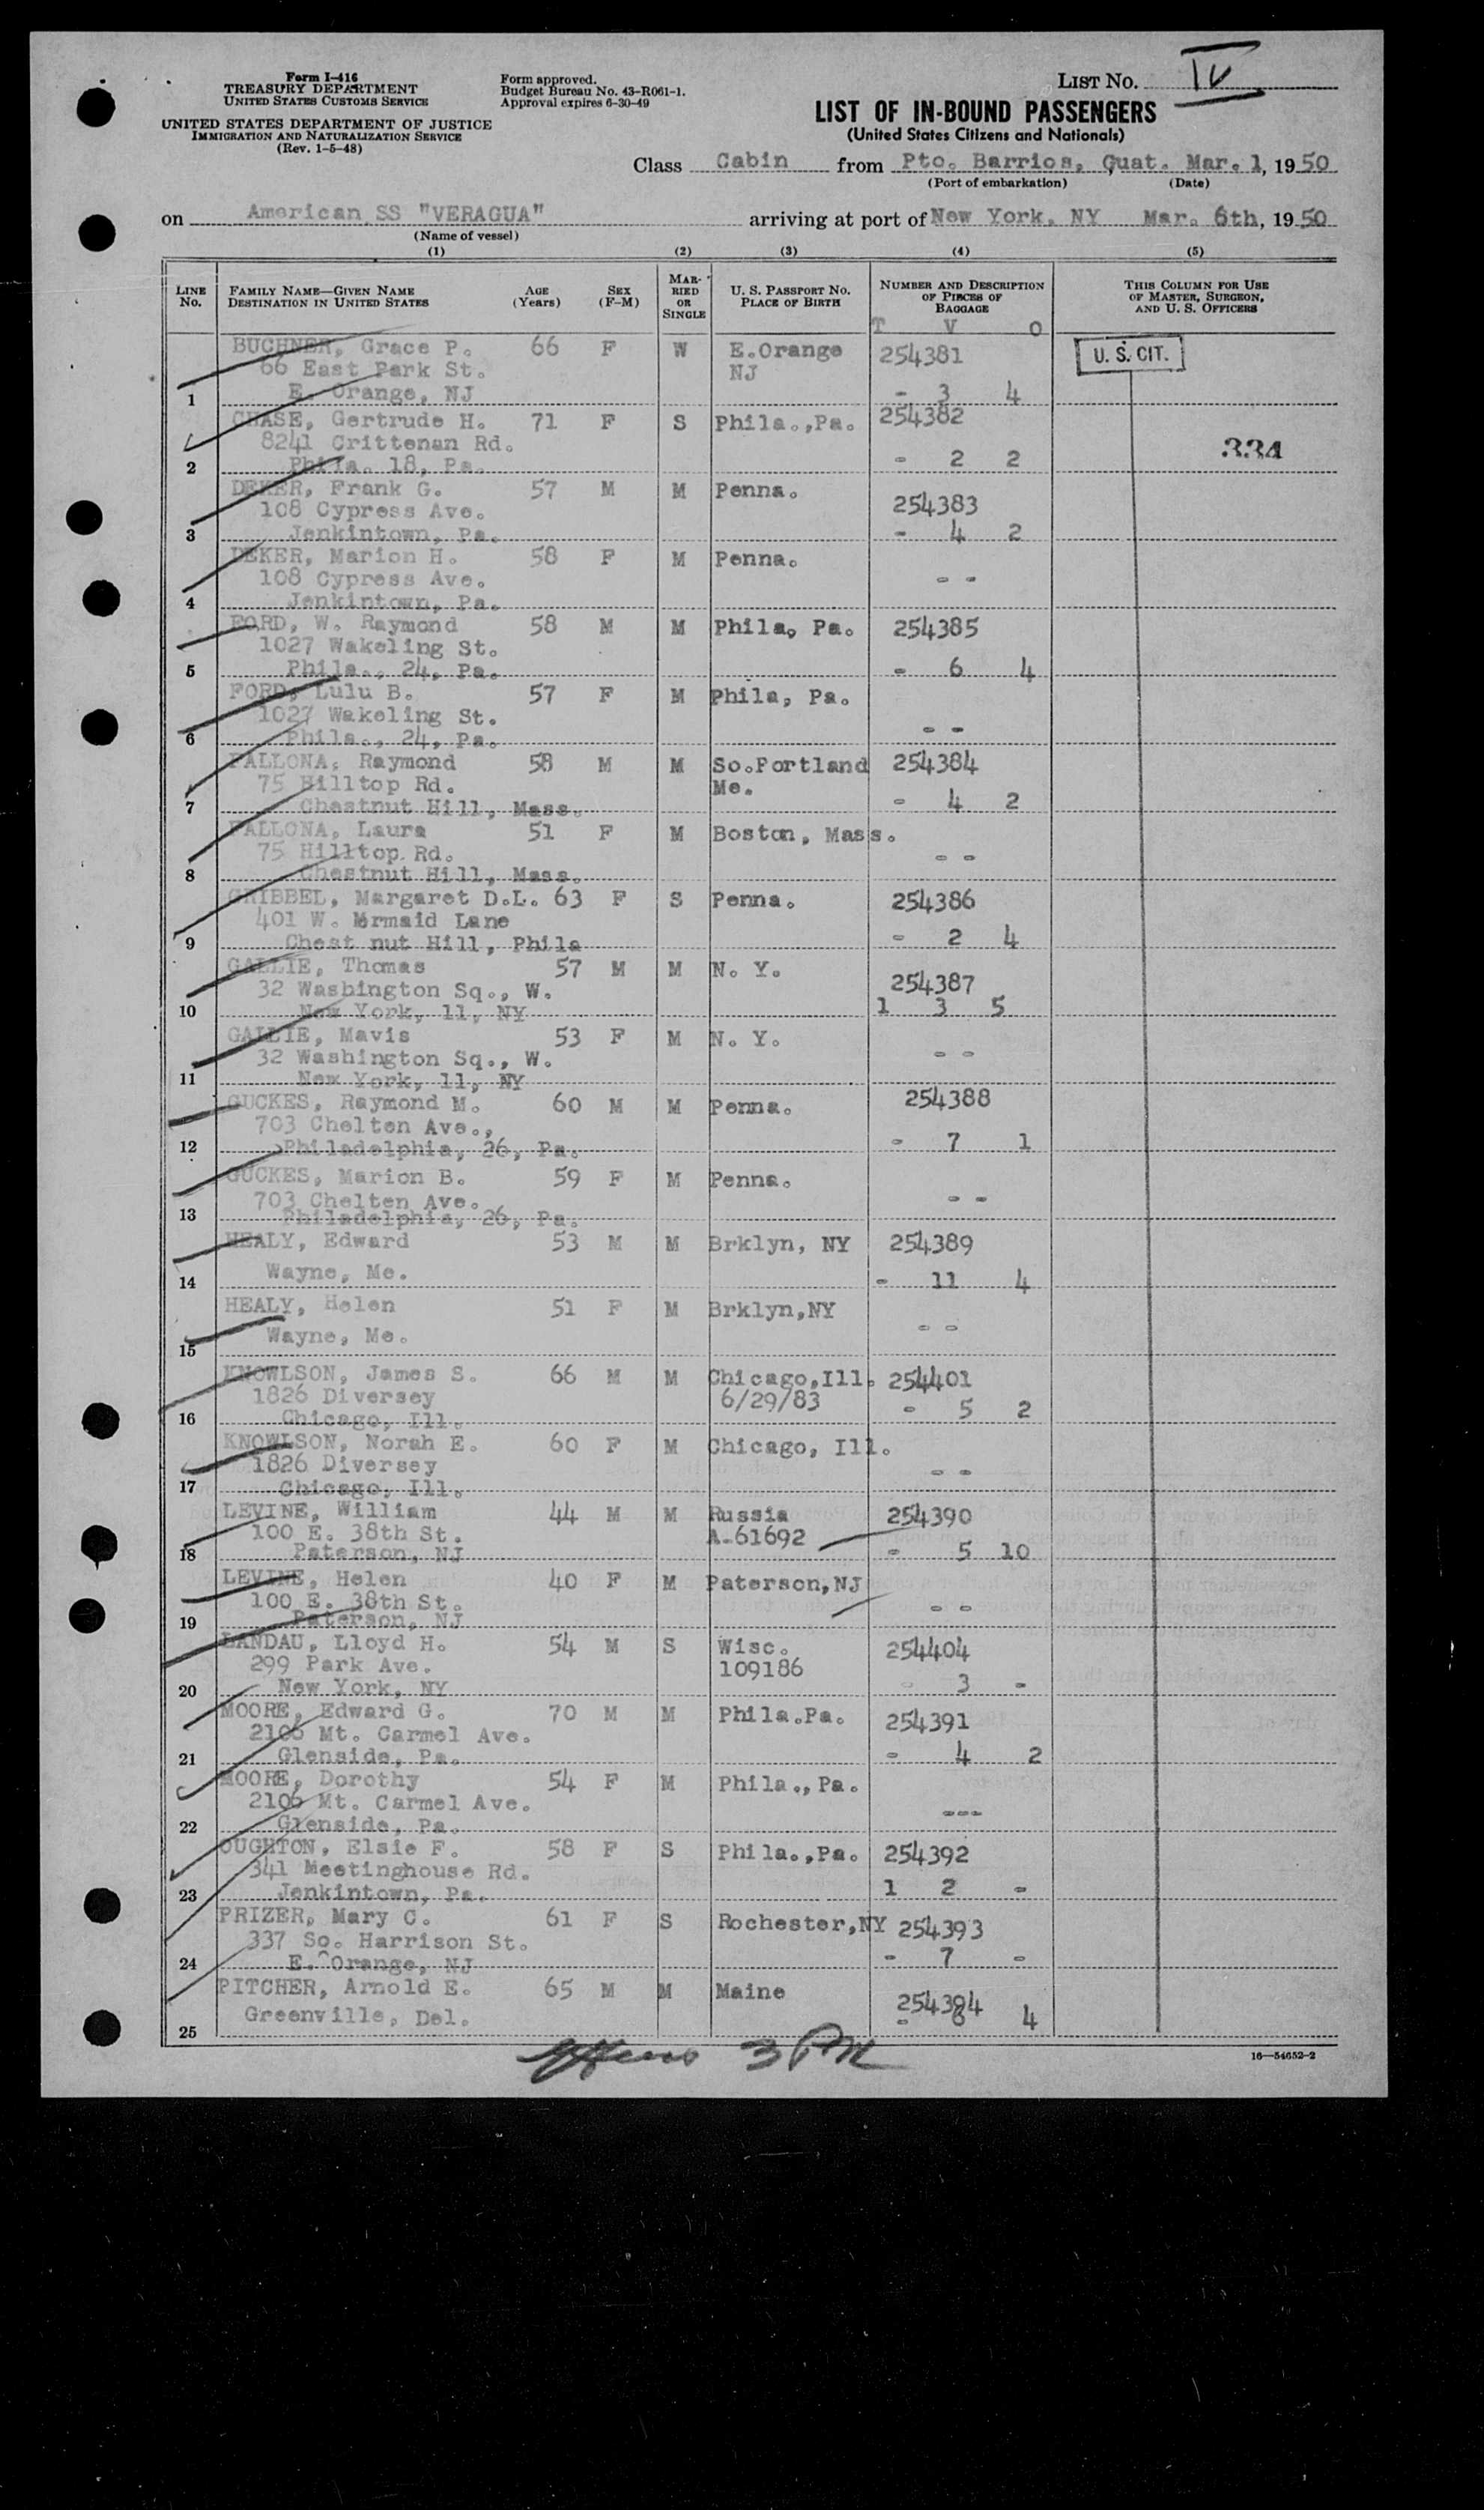 Form I-416
TREASURY DEPARTMENT
UNITED STATES CUSTOMS SERVICE
UNITED STATES DEPARTMENT OF JUSTICE
IMMIGRATION AND NATURALIZATION SERVICE
(Rev. 1-5-48)
Form approved.
Budget Bureau No. 43-R061-1.
Approval expires 6-30-49
LIST NO. IV
LIST OF IN-BOUND PASSENGERS
(United States Citizens and Nationals)
Class Cabin from Pto. Barrios, Guat. Mar. 1, 1950
(Port of embarkation) (Date)
on American SS "VERAGUA" arriving at port of New York, NY Mar. 6th, 1950
(Name of vessel)
(1) (2) (3) (4) (5)
LINE No. FAMILY NAME—GIVEN NAME DESTINATION IN UNITED STATES AGE (Years) SEX (F-M) MARRIED OR SINGLE U. S. PASSPORT NO. PLACE OF BIRTH NUMBER AND DESCRIPTION OF PIECES OF BAGGAGE THIS COLUMN FOR USE OF MASTER, SURGEON, AND U. S. OFFICERS
T V O
BUCHNER, Grace P. 66 F W E.Orange 254381 U. S. CIT.
66 East Park St. NJ
1 E. Orange, NJ - 3 4
CHASE, Gertrude H. 71 F S Phila.,Pa. 254382
8241 Crittenan Rd. 334
2 Phila. 18, Pa. - 2 2
DEKER, Frank G. 57 M M Penna. 254383
108 Cypress Ave.
3 Jenkintown, Pa. - 4 2
DEKER, Marion H. 58 F M Penna.
108 Cypress Ave. - -
4 Jenkintown, Pa.
FORD, W. Raymond 58 M M Phila, Pa. 254385
1027 Wakeling St.
5 Phila., 24, Pa. - 6 4
FORD, Lulu B. 57 F M Phila, Pa.
1027 Wakeling St.
6 Phila., 24, Pa. - -
FALLONA, Raymond 58 M M So.Portland 254384
75 Hilltop Rd. Me.
7 Chestnut Hill, Mass. - 4 2
FALLONA, Laura 51 F M Boston, Mass.
75 Hilltop Rd. - -
8 Chestnut Hill, Mass.
GRIBBEL, Margaret D.L. 63 F S Penna. 254386
401 W. Mrmaid Lane
9 Chest nut Hill, Phila - 2 4
GALLIE, Thomas 57 M M N. Y. 254387
32 Washington Sq., W.
10 New York, 11, NY 1 3 5
GALLIE, Mavis 53 F M N. Y.
32 Washington Sq., W. - -
11 New York, 11, NY
GUCKES, Raymond M. 60 M M Penna. 254388
703 Chelten Ave.,
12 Philadelphia, 26, Pa. - 7 1
GUCKES, Marion B. 59 F M Penna.
703 Chelten Ave. - -
13 Philadelphia, 26, Pa.
HEALY, Edward 53 M M Brklyn, NY 254389
14 Wayne, Me. - 11 4
HEALY, Helen 51 F M Brklyn,NY
15 Wayne, Me. - -
KNOWLSON, James S. 66 M M Chicago,Ill. 254401
1826 Diversey 6/29/83
16 Chicago, Ill. - 5 2
KNOWLSON, Norah E. 60 F M Chicago, Ill.
1826 Diversey - -
17 Chicago, Ill.
LEVINE, William 44 M M Russia 254390
100 E. 38th St. A-61692
18 Paterson, NJ - 5 10
LEVINE, Helen 40 F M Paterson,NJ
100 E. 38th St. - -
19 Paterson, NJ
LANDAU, Lloyd H. 54 M S Wisc. 254404
299 Park Ave. 109186
20 New York, NY - 3 -
MOORE, Edward G. 70 M M Phila.Pa. 254391
2106 Mt. Carmel Ave.
21 Glenside, Pa. - 4 2
MOORE, Dorothy 54 F M Phila., Pa.
2106 Mt. Carmel Ave. ---
22 Glenside, Pa.
OUGHTON, Elsie F. 58 F S Phila.,Pa. 254392
341 Meetinghouse Rd.
23 Jenkintown, Pa. 1 2 -
PRIZER, Mary C. 61 F S Rochester,NY 254393
337 So. Harrison St.
24 E. Orange, NJ - 7 -
PITCHER, Arnold E. 65 M M Maine 254394
25 Greenville, Del. - 8 4
3 PM
16—54652-2